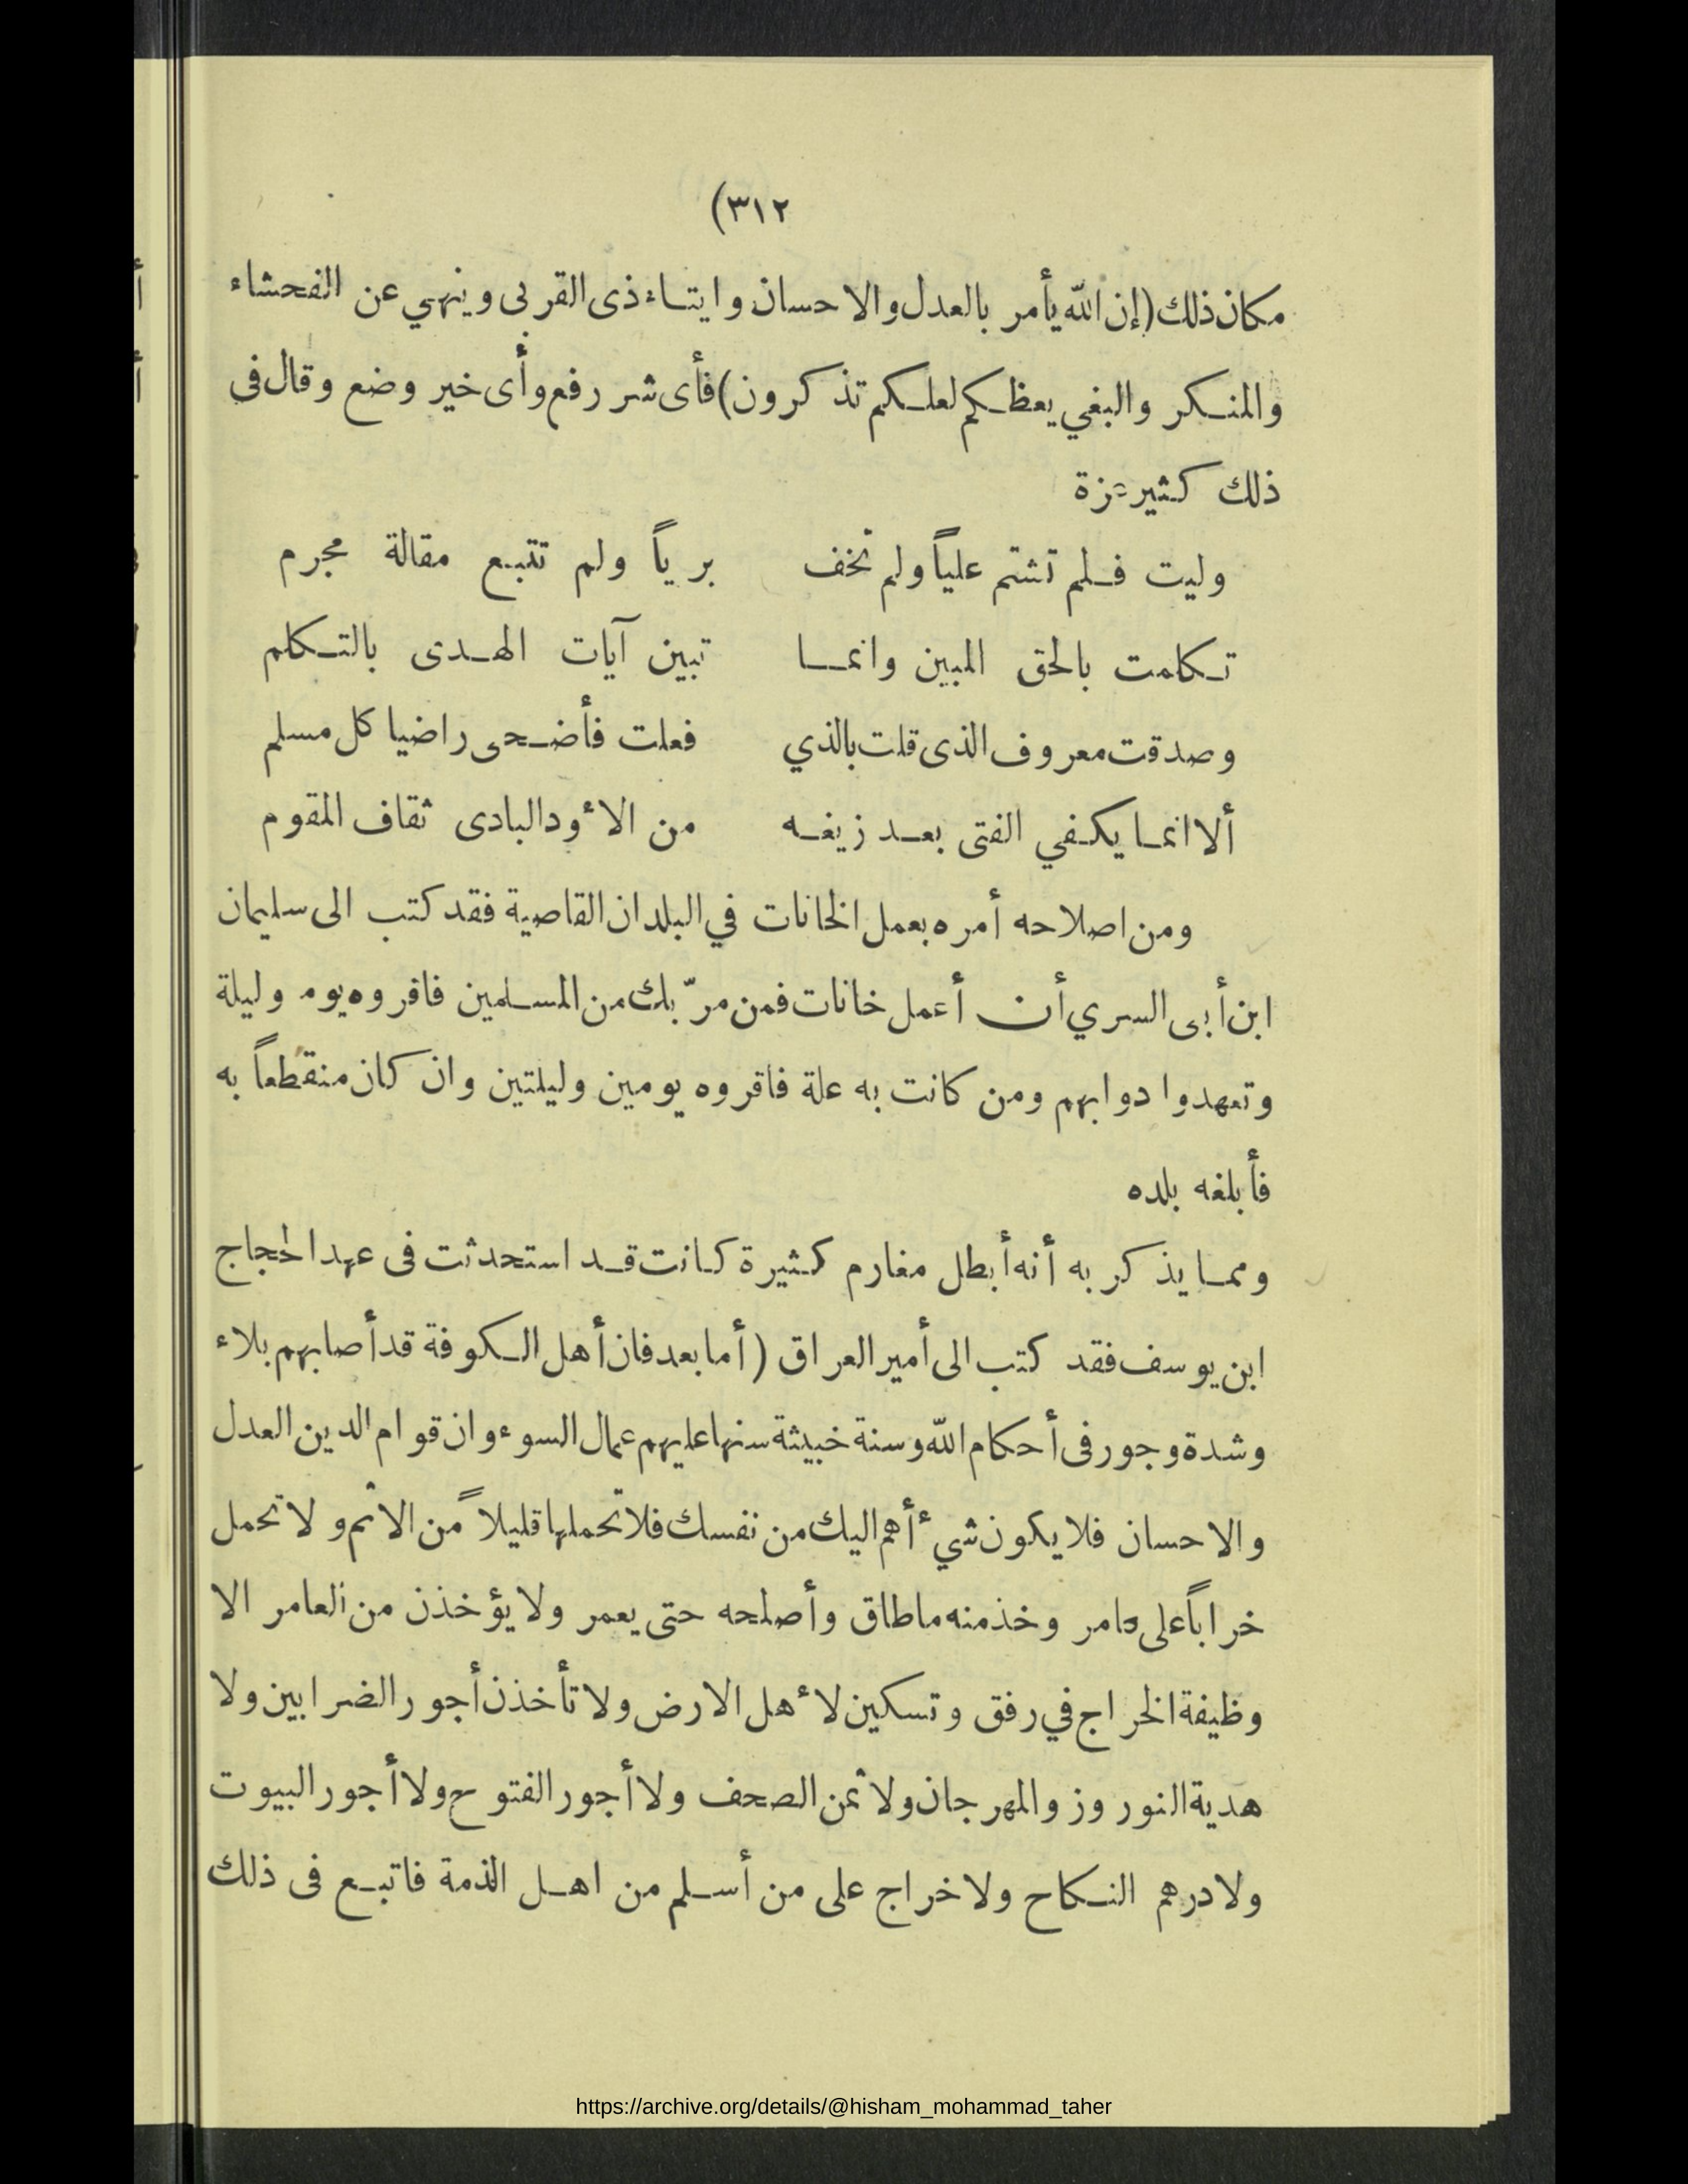 (٣١٢
مكان ذلك (إن الله يأمر بالعدل والاحسان وايتاء ذى القربى وينهي عن الفحشاء
والمنكر والبغي يعظكم لعلكم تذكرون) فأى شر رفع وأى خير وضع وقال فى
ذلك كثير عزة
وليت فلم تشتم علياً ولم تخف برياً ولم تتبع مقالة مجرم
تكلمت بالحق المبين وانما تبين آيات الهدى بالتكلم
وصدقت معروف الذى قلت بالذي فعلت فأضحى راضيا كل مسلم
ألا انما يكفي الفتى بعد زيغه من الأود البادى ثقاف المقوم
ومن اصلاحه أمره بعمل الخانات في البلدان القاصية فقد كتب الى سليمان
ابن أبى السري أن أعمل خانات فمن مرّ بك من المسلمين فاقروه يوم وليلة
وتعهدوا دوابهم ومن كانت به علة فاقروه يومين وليلتين وان كان منقطعاً به
فأبلغه بلده
ومما يذكر به أنه أبطل مغارم كثيرة كانت قد استحدثت فى عهد الحجاج
ابن يوسف فقد كتب الى أمير العراق (أما بعد فان أهل الكوفة قد أصابهم بلاء
وشدة وجور فى أحكام الله وسنة خبيثة سنها عليهم عمال السوء وان قوام الدين العدل
والاحسان فلا يكون شيء أهم اليك من نفسك فلا تحملها قليلاً من الاثم ولا تحمل
خراباً على عامر وخذ منه ما طاق وأصلحه حتى يعمر ولا يؤخذن من العامر الا
وظيفة الخراج في رفق وتسكين لأهل الارض ولا تأخذن أجور الضرابين ولا
هدية النوروز والمهرجان ولا ثمن الصحف ولا أجور الفتوح ولا أجور البيوت
ولا درهم النكاح ولا خراج على من أسلم من اهل الذمة فاتبع فى ذلك
https://archive.org/details/@hisham_mohammad_taher